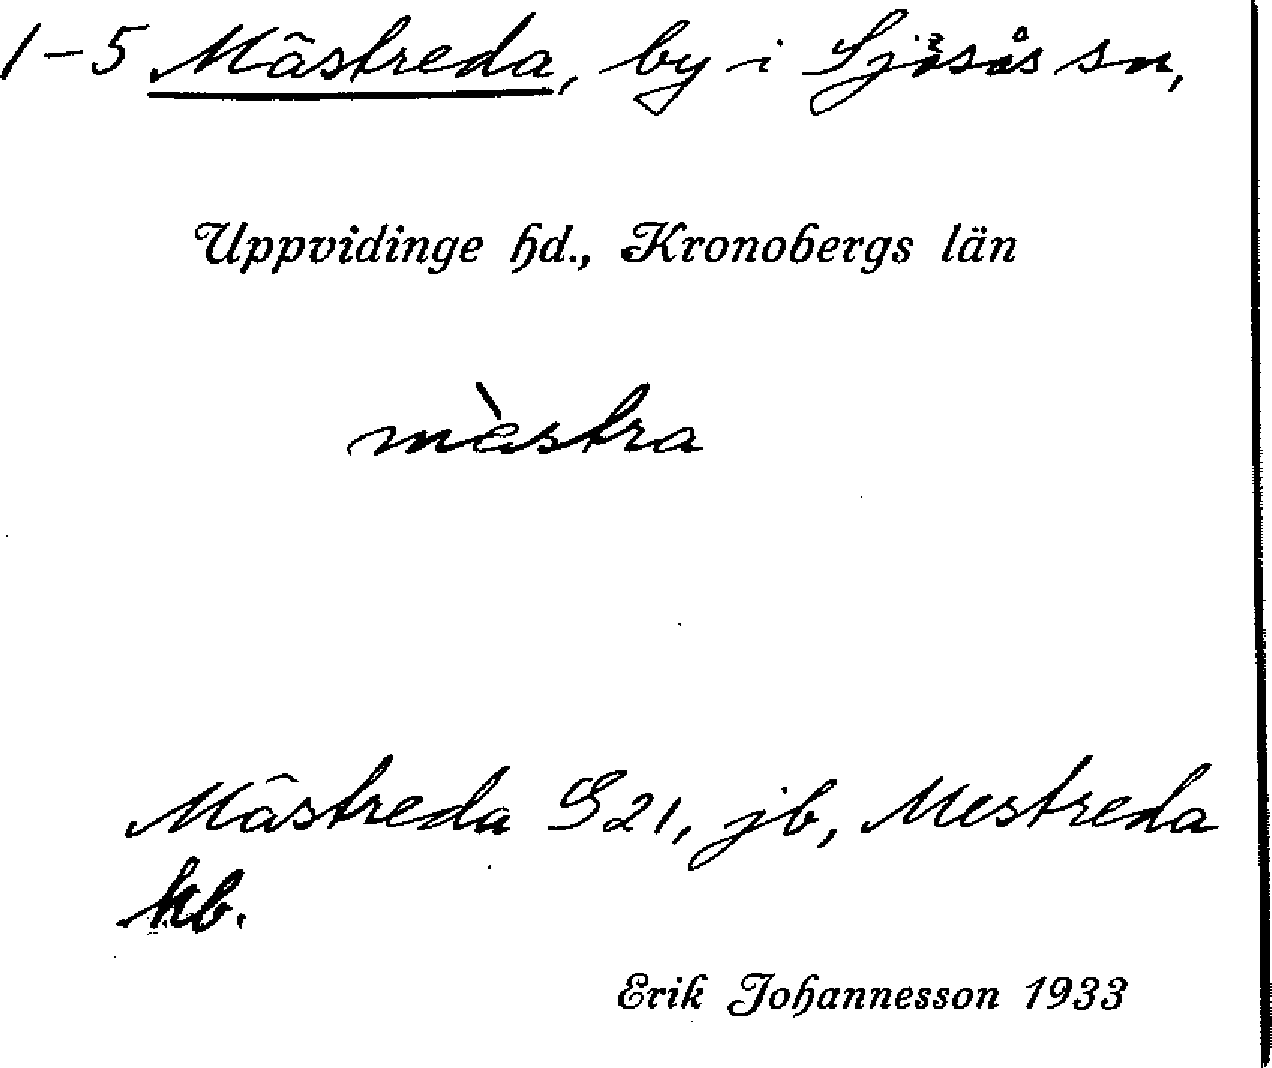 1-5 Mästreda, by i Sjösås sn,
Uppvidinge hd., Kronobergs län
mæ̀stra
Mästreda S21, jb, Mestreda
kb.
Erik Johannesson 1933